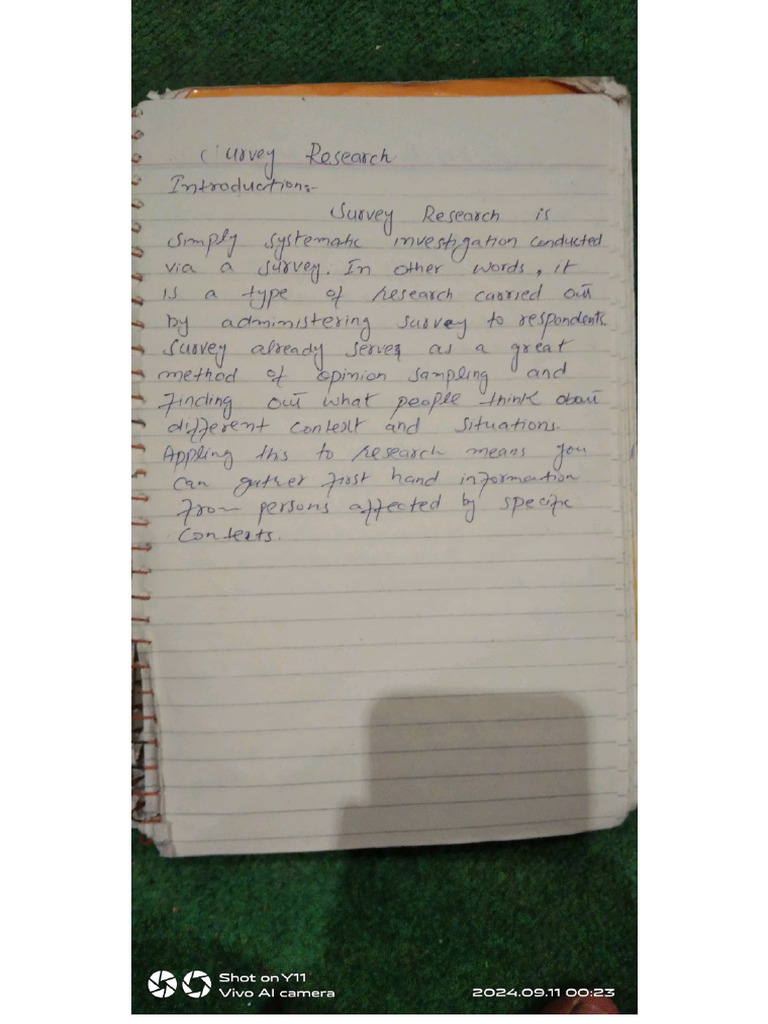 Survey Research
Introduction:-
Survey Research is
simply systematic investigation conducted
via a survey. In other words, it
is a type of research carried out
by administering survey to respondents.
Survey already serves as a great
method of opinion sampling and
finding out what people think about
different context and situations.
Appling this to research means you
can gather first hand information
from persons affected by specific
contexts.
Shot on Y11
Vivo AI camera
2024.09.11 00:23